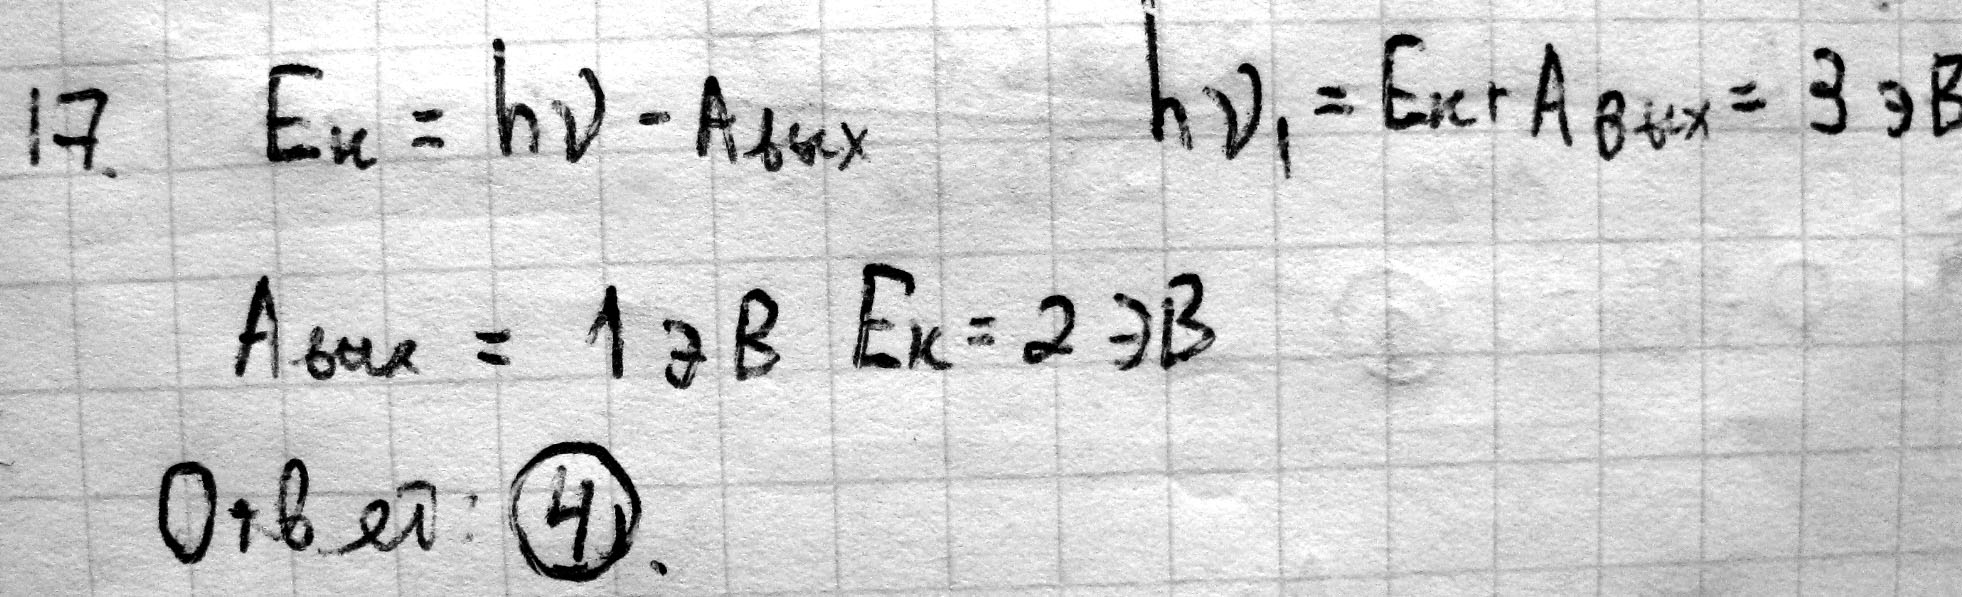 17. Eк = hν - Aвых hν₁ = Eк + Aвых = 3 эВ
Aвых = 1 эВ Eк = 2 эВ
Ответ: 4.